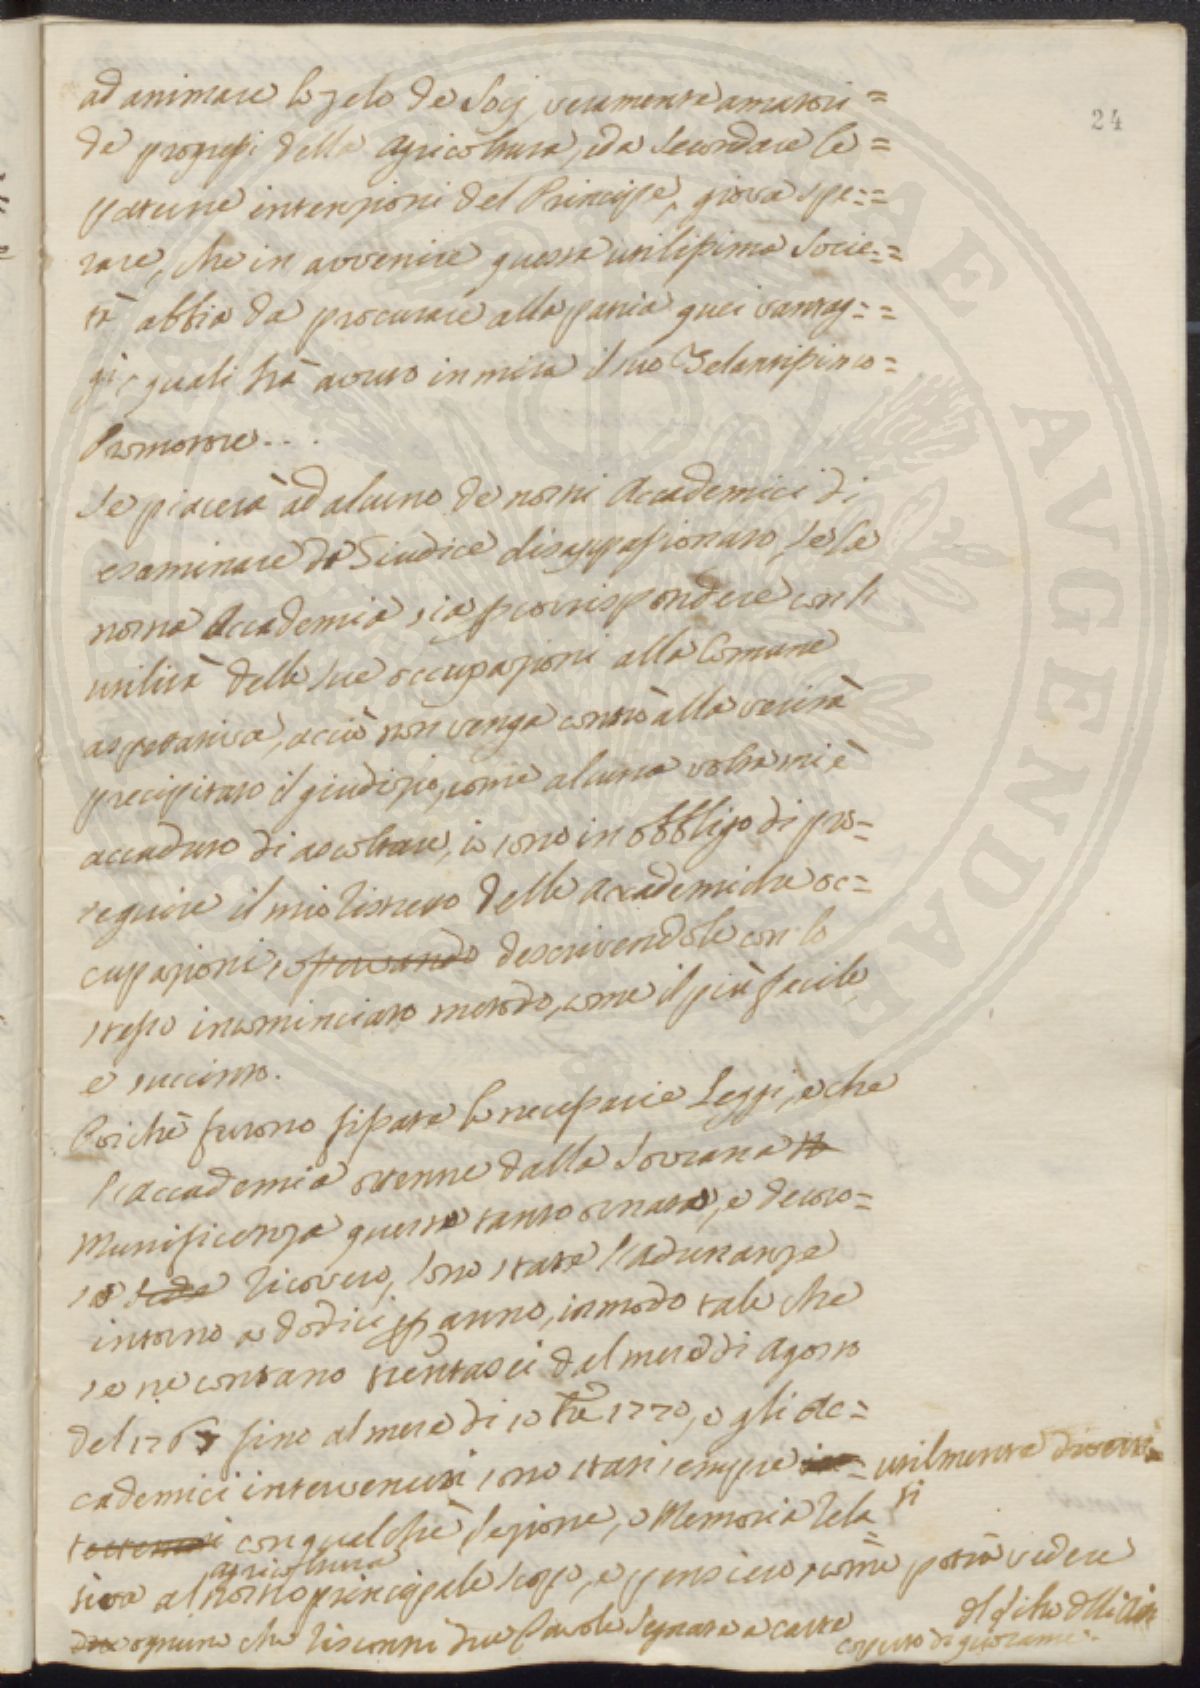 24
ad animare lo zelo de Socj veramente amatori =
de progressi della Agricoltura, e da secondare le =
paterne intenzioni del Principe, giova spe==
rare, che in avvenire questa utilissima Socie==
tà abbia da procurare alla patria quei vantag==
gi, quali hà avuto in mira il suo Zelantissimo =
Promotore...
Se piacerà ad alcuno de nostri Accademici di
esaminare da Giudice disappassionato, se la
nostra Accademia sia p corrispondere con l'
utilità delle sue occupazioni alla Comune
aspettativa, acciò non venga contro alla verità
precipitato il giudizio, come alcuna volta mi è
accaduto di ascoltare, io sono in obbligo di pro=
seguire il mio ristretto delle accademiche oc=
cupazioni, descrivendole con lo
stesso incominciato metodo, come il più facile,
e succinto.
Poichè furono fissate le necessarie Leggi, e che
l'Accademia ottenne dalla Sovrana
Munificenza questo tanto ornato, e decoro=
so sede ricovero, sono state l'adunanze
intorno a dodici p anno, in modo tale che
se ne contano trentasei dal mese di Agosto
del 176 fino al mese di 1770, e gli Ac=
cademici intervenuti sono stati sempre = utilmente
ti
con qualche Lezione, o Memoria rela
agricoltura
tiva al nostro principale scopo, e pensiero come potrà vedere
ognuno che riscontri due Parole segnate a carta